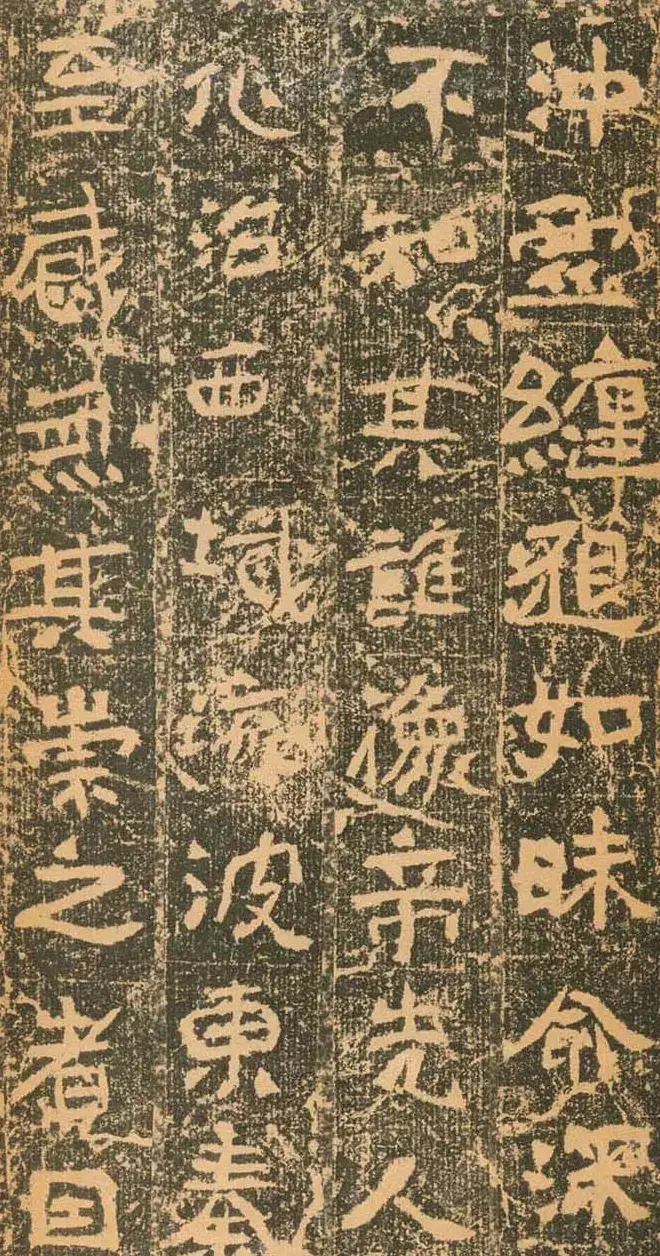 沖纏如昧深
不知其誰像帝先人
化治西域流波東秦
至感無其崇之者因